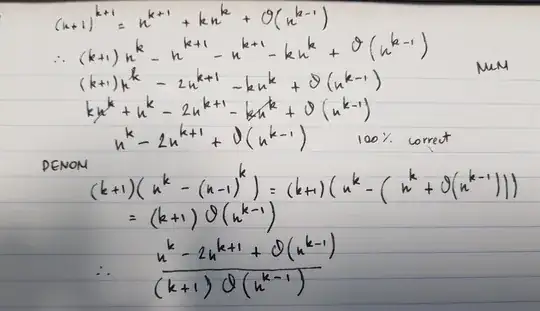 (n+1)^{k+1} = n^{k+1} + kn^k + O(n^{k-1})
∴ (k+1)n^k - n^{k+1} - n^{k+1} - kn^k + O(n^{k-1})
(k+1)n^k - 2n^{k+1} - kn^k + O(n^{k-1}) NUM
kn^k + n^k - 2n^{k+1} - kn^k + O(n^{k-1})
n^k - 2n^{k+1} + O(n^{k-1}) 100% correct
DENOM
(k+1)(n^k - (n-1)^k) = (k+1)(n^k - (n^k + O(n^{k-1})))
= (k+1) O(n^{k-1})
∴ n^k - 2n^{k+1} + O(n^{k-1})
(k+1) O(n^{k-1})